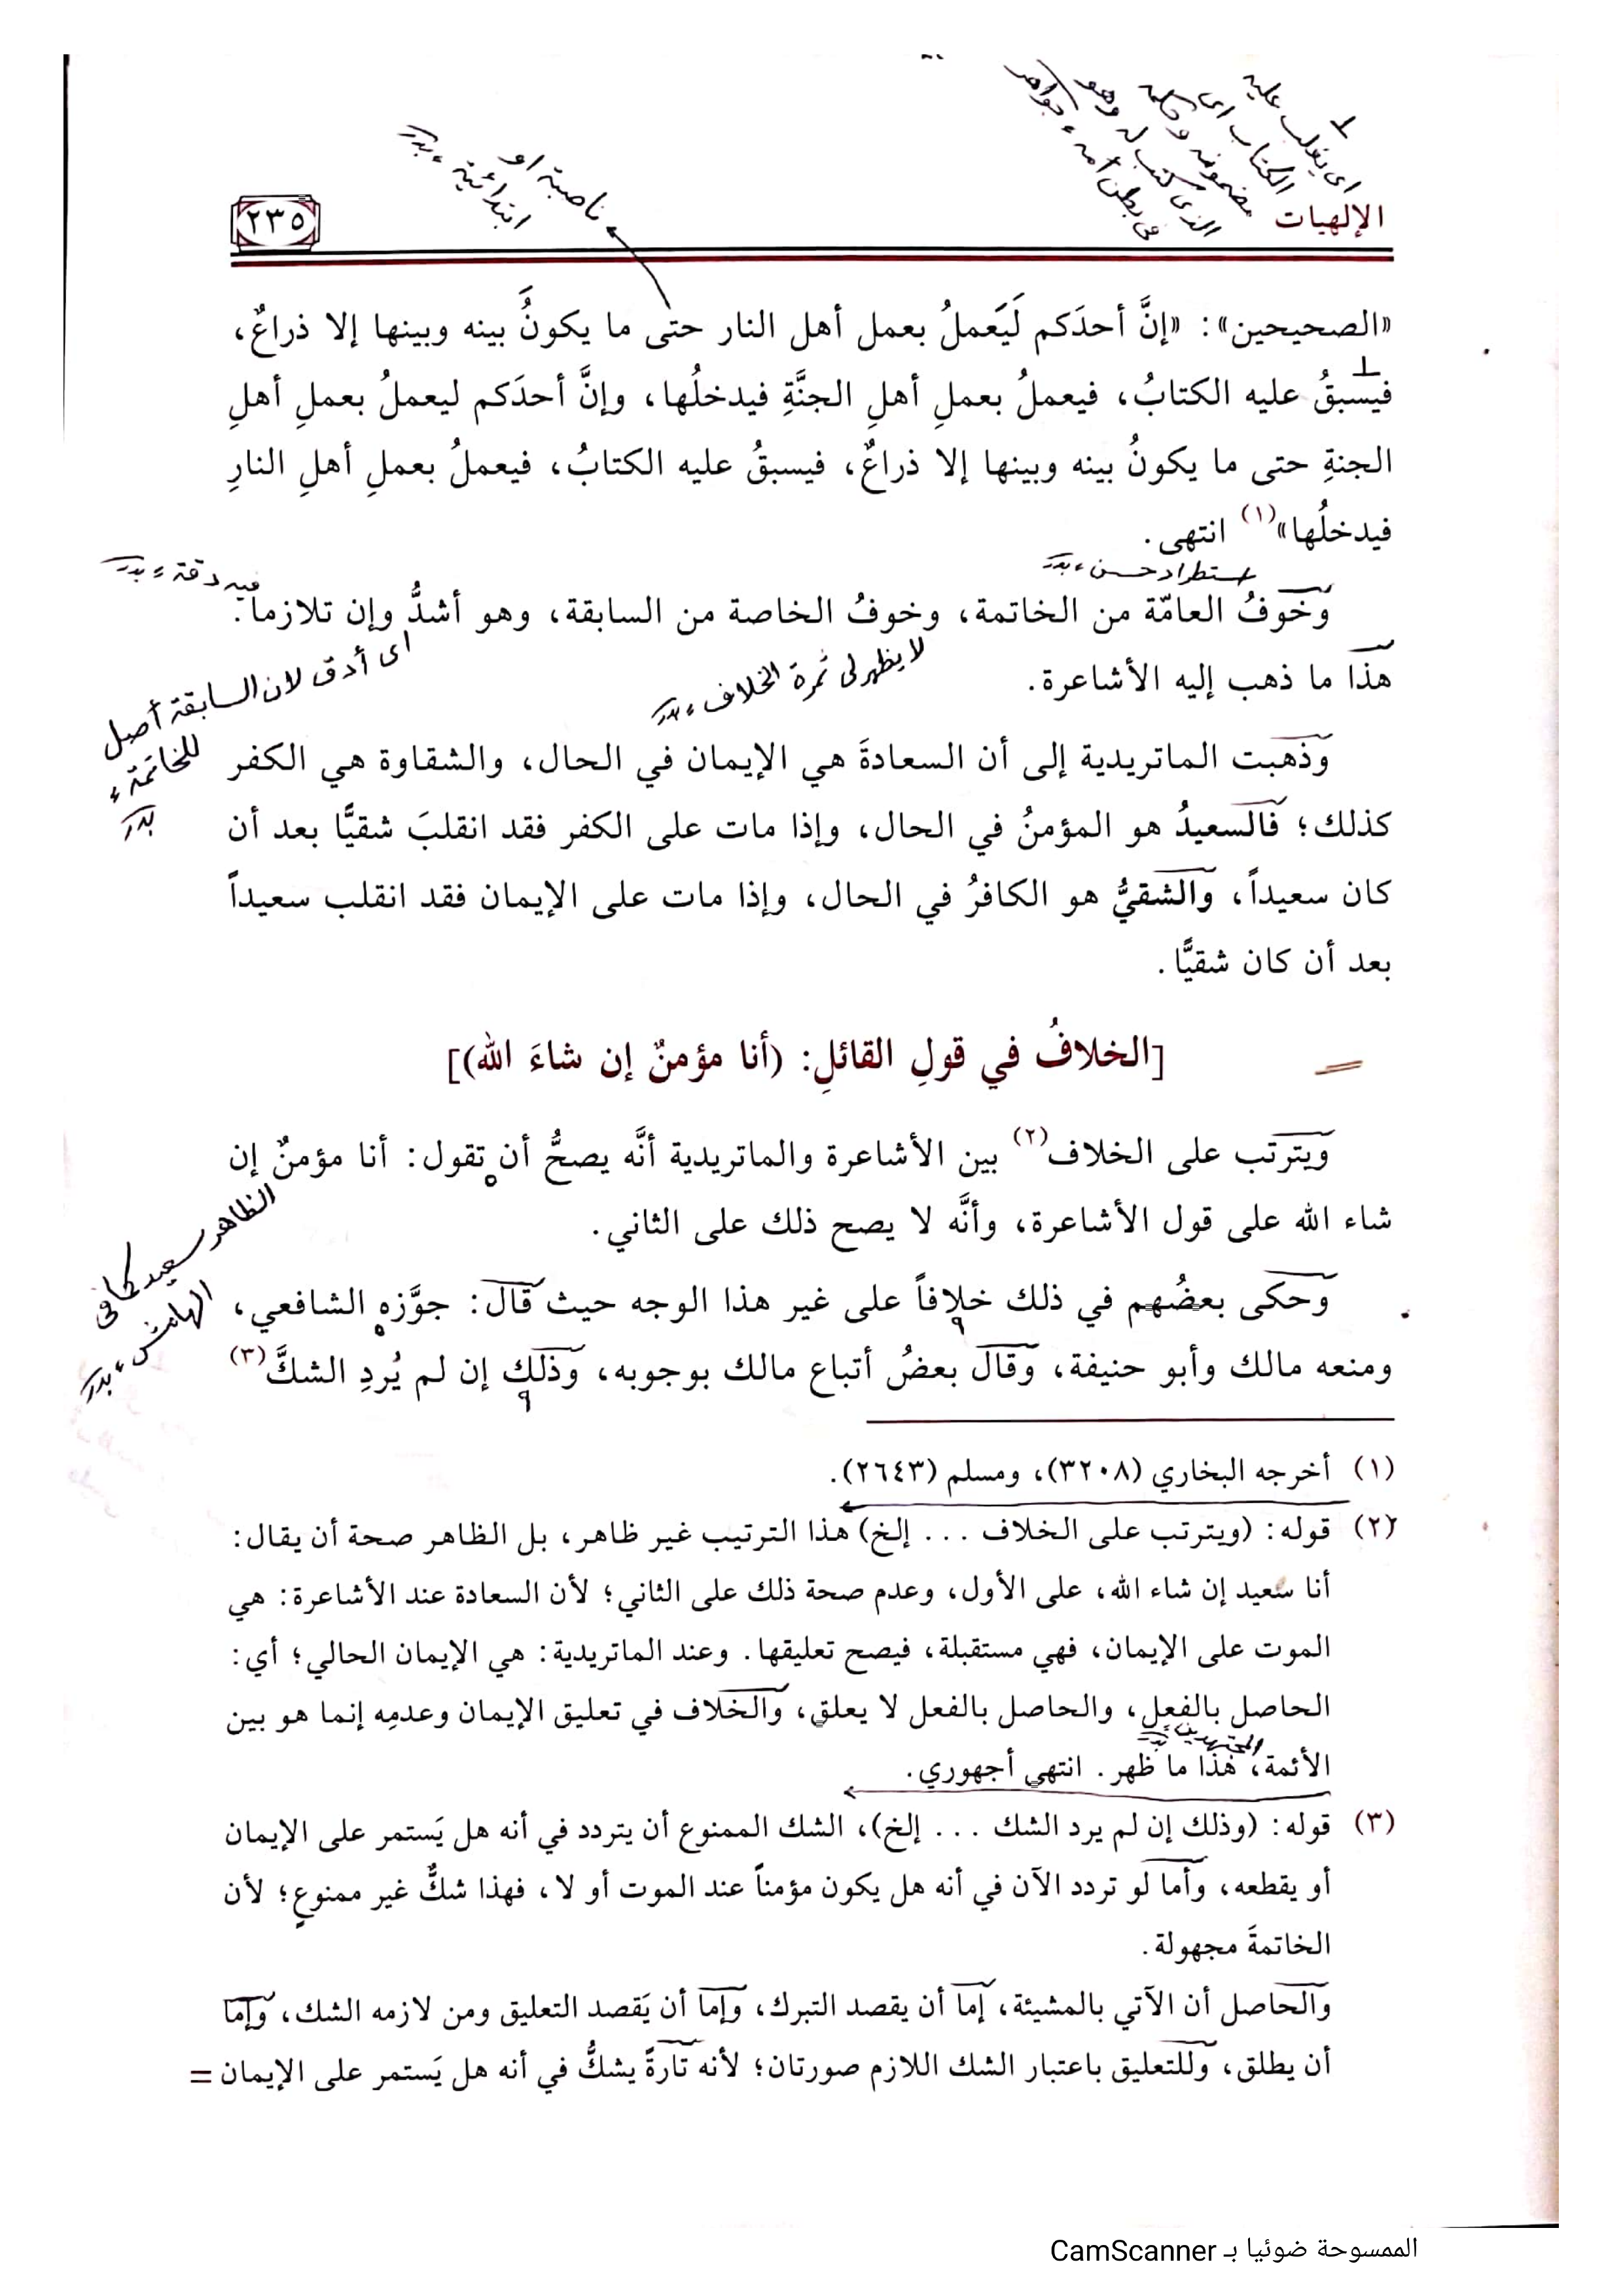 اى يغلب عليه
الكتاب اى
مضمونه وحكمه
الذى كتب له وهو
فى بطن أمه، جواهر
ناصبة او
ابتدائية، بدر
الإلهيات
٢٣٥
«الصحيحين»: «إنَّ أحدَكم لَيَعملُ بعمل أهل النار حتى ما يكونُ بينه وبينها إلا ذراعٌ،
فيسبقُ عليه الكتابُ، فيعملُ بعملِ أهلِ الجنَّةِ فيدخلُها، وإنَّ أحدَكم ليعملُ بعملِ أهلِ
الجنةِ حتى ما يكونُ بينه وبينها إلا ذراعٌ، فيسبقُ عليه الكتابُ، فيعملُ بعملِ أهلِ النارِ
فيدخلُها»(١) انتهى.
استطراد حسن، بدر
فيه دقة، بدر
وخوفُ العامّة من الخاتمة، وخوفُ الخاصة من السابقة، وهو أشدُّ وإن تلازما.
اى أدق لان السابقة أصل
للخاتمة،
بدر
هذا ما ذهب إليه الأشاعرة.
لا يظهر لى ثمرة الخلاف، بدر
وذهبت الماتريدية إلى أن السعادةَ هي الإيمان في الحال، والشقاوة هي الكفر
كذلك؛ فالسعيدُ هو المؤمنُ في الحال، وإذا مات على الكفر فقد انقلبَ شقيًّا بعد أن
كان سعيداً، والشقيُّ هو الكافرُ في الحال، وإذا مات على الإيمان فقد انقلب سعيداً
بعد أن كان شقيًّا.
[الخلافُ في قولِ القائلِ: (أنا مؤمنٌ إن شاءَ الله)]
ويترتب على الخلاف(٢) بين الأشاعرة والماتريدية أنَّه يصحُّ أن تقول: أنا مؤمنٌ إن
شاء الله على قول الأشاعرة، وأنَّه لا يصح ذلك على الثاني.
الظاهر سعيد كما فى
الهامش، بدر
وحكى بعضُهم في ذلك خلافاً على غير هذا الوجه حيث قال: جوَّزه الشافعي،
ومنعه مالك وأبو حنيفة، وقال بعضُ أتباع مالك بوجوبه، وذلك إن لم يُردِ الشكَّ(٣)
(١) أخرجه البخاري (٣٢٠٨)، ومسلم (٢٦٤٣).
(٢) قوله: (ويترتب على الخلاف ... إلخ) هذا الترتيب غير ظاهر، بل الظاهر صحة أن يقال:
أنا سعيد إن شاء الله، على الأول، وعدم صحة ذلك على الثاني؛ لأن السعادة عند الأشاعرة: هي
الموت على الإيمان، فهي مستقبلة، فيصح تعليقها. وعند الماتريدية: هي الإيمان الحالي؛ أي:
الحاصل بالفعل، والحاصل بالفعل لا يعلق، والخلاف في تعليق الإيمان وعدمِه إنما هو بين
المجتهدين، بدر
الأئمة، هذا ما ظهر. انتهى أجهوري.
(٣) قوله: (وذلك إن لم يرد الشك ... إلخ)، الشك الممنوع أن يتردد في أنه هل يَستمر على الإيمان
أو يقطعه، وأما لو تردد الآن في أنه هل يكون مؤمناً عند الموت أو لا، فهذا شكٌّ غير ممنوعٍ؛ لأن
الخاتمةَ مجهولة.
والحاصل أن الآتي بالمشيئة، إما أن يقصد التبرك، وإما أن يَقصد التعليق ومن لازمه الشك، وإما
أن يطلق، وللتعليق باعتبار الشك اللازم صورتان؛ لأنه تارةً يشكُّ في أنه هل يَستمر على الإيمان =
الممسوحة ضوئيا بـ CamScanner